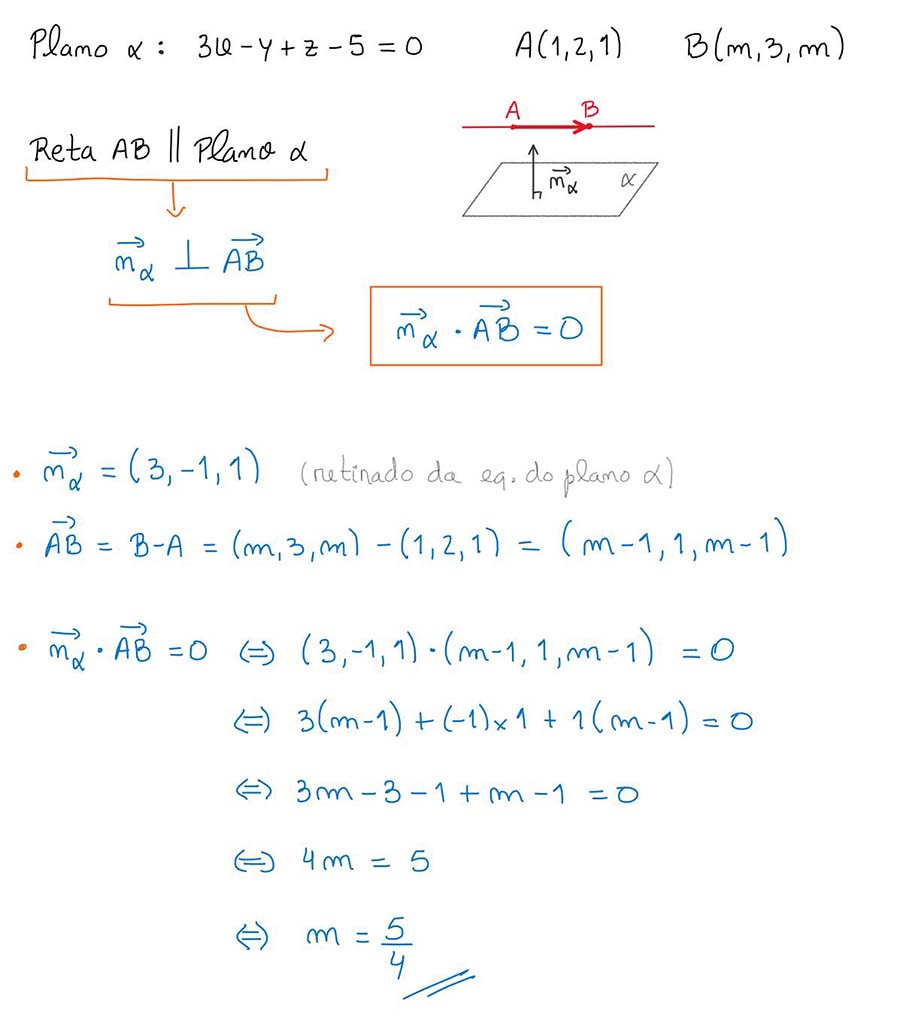 Plano α : 3x - y + z - 5 = 0 A(1,2,1) B(m,3,m)
A B
Reta AB ∥ Plano α
n⃗α α
n⃗α ⊥ AB⃗
n⃗α · AB⃗ = 0
• n⃗α = (3,-1,1) (retirado da eq. do plano α)
• AB⃗ = B-A = (m,3,m) - (1,2,1) = (m-1,1,m-1)
• n⃗α · AB⃗ = 0 ⇔ (3,-1,1)·(m-1,1,m-1) = 0
⇔ 3(m-1) + (-1)×1 + 1(m-1) = 0
⇔ 3m - 3 - 1 + m - 1 = 0
⇔ 4m = 5
⇔ m = 5/4